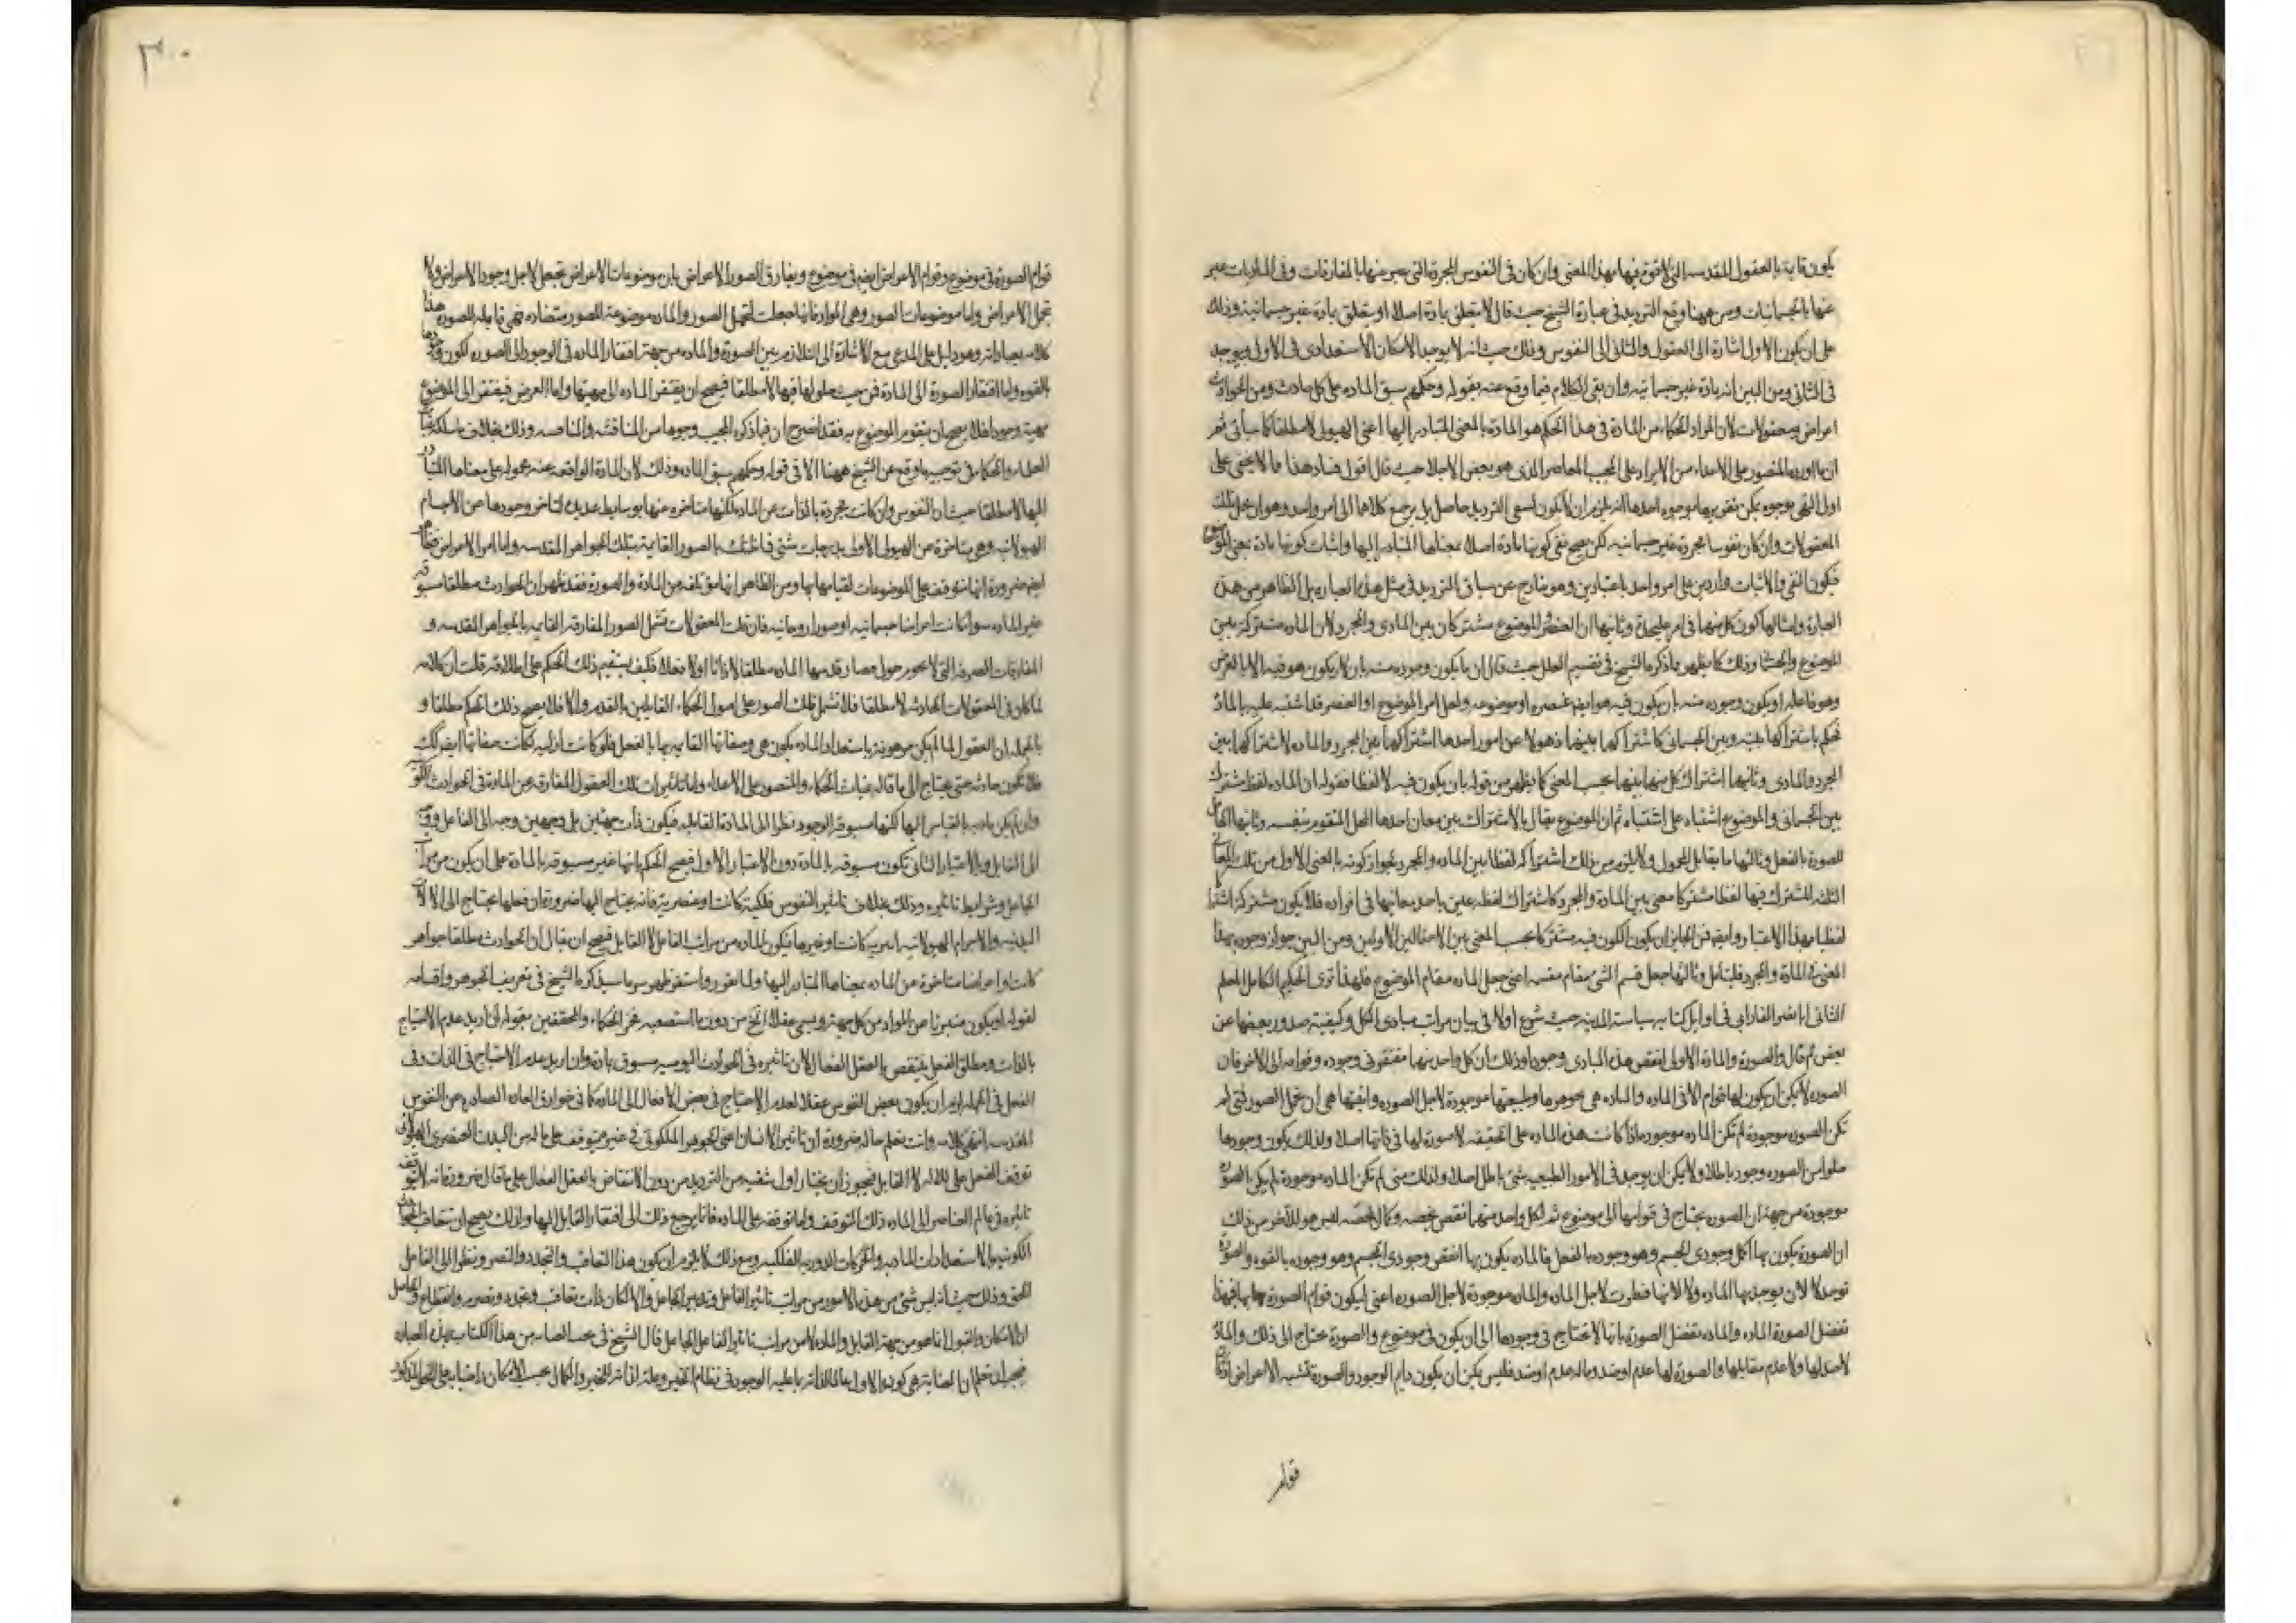 يكون قايمة بالعقول المقدسه التى لا قوة فيها بهذا المعنى وان كان فى النفوس المجردة التى عبر عنها بالمفارقات وفى الماديات عبر
عنها بالجسمانيات ومن ههنا وقع الترديد فى عبارة الشيخ حيث قال لا يتعلق بمادة اصلا او يتعلق بمادة غير جسمانية وذلك
على ان يكون الاول اشارة الى العقول والثانى الى النفوس وذلك حيث انه لا يوجد الامكان الاستعدادى فى الاول ويوجد
فى الثانى ومن البين انه مادة غير جسمانيه وان بقى الكلام فيما وقع عنه بقوله وحكمهم بسبق الماده على كل حادث ومن الحوادث
اعراض ومعقولات لان المراد الحكماء من المادة فى هذا الحكم هو المادة بالمعنى المتبادر اليها اعنى الهيولى لا مطلقا كما سيأتى ثم
ان ما اورده المنصور على الاعداء من الايراد على المجيب المعاصر الذى هو بعض الاجلاء حيث قال اقول فساد هذا مما لا يخفى على
اولى النهى بوجوه يمكن تقريرها بوجوه احدها انه يلزم ان لا يكون لسعى الترديد حاصل بل يرجع كلاهما الى امر واحد وهو ان محل تلك
المعقولات وان كان نفوسا مجردة غير جسمانيه لكن يصح نفى كونها مادة اصلا بمعناها المتبادر اليها واثبات كونها مادة بمعنى الموضوع
فيكون النفى والاثبات واردين على امر واحد باعتبارين وهو خارج عن سياق الترديد فى مثل هذه العباره بل الظاهر من هذه
العبارة وامثالها كون كل منها فى امر عليحدة وثانيها ان العنصر والموضوع مشتركان بين المادى والمجرد لان الماده مشتركة بين
الموضوع وذلك كما يظهر مما ذكره الشيخ فى تقسيم العلل حيث قال ان ما يكون وجوده منه بان لا يكون هو فيه الا بالعرض
وهو فاعله او يكون وجوده منه بان يكون فيه هو ايضا عنصره او موضوعه ولعل امر الموضوع او العنصر قد اشتبه عليه بالمادة
فحكم باشتراكها بينه وبين الجسمانى كاشتراكهما بينهما ذهولا عن امور احدها اشتراكهما بين المجرد والماده لاشتراكها بين
المجرد والمادى وثانيها اشتراك كل منها بينها بحسب المعنى كما يظهر من قوله بان يكون فيه لا لفظا فقوله ان الماده لفظ مشترك
بين الجسمانى والموضوع اشتباه على اشتباه ثم ان الموضوع يقال بالاشتراك بين معان احدها المحل المتقوم بنفسه وثانيها
للصورة بالفعل وثالثها ما يقابل المحمول ولا يلزم من ذلك اشتراكه لفظا بين الماده والمجرد لجواز كونه بالمعنى الاول من تلك المعانى
الثلثه المشترك فيها لفظا مشتركا معنى بين المادة والمجرد كاشتراك لفظه عين باحد معانيها فى افراده فلا يكون مشتركه
لفظيا بهذا الاعتبار وايضا فمن الجايز ان يكون الكون فيه مشتركا بحسب المعنى بين الاحتمالين الاولين ومن البين جواز وجوده بهذا
المعنى فى المادة والمجرد فليتأمل وثالثها جعل قسم الشئ مقام مقسمه اعنى جعل الماده مقام الموضوع فلهذا ترى الحكيم الكامل المعلم
الثانى ابا نصر الفارابى فى اوايل كتابه سياسة المدينه حيث شرع اولا فى بيان مراتب مبادى الكل وكيفية صدور بعضها عن
بعض ثم قال والصورة والمادة الاولى انقص هذه المبادى وجودا وذلك ان كل واحد منهما مفتقر فى وجوده وقوامه الى الاخر فان
الصوره لا يمكن ان يكون لها قوام الا فى الماده والماده هى بجوهرها وطبيعتها موجودة لاجل الصوره وانيتها هى ان تحمل الصور فمتى لم
تكن الصوره موجودة لم تكن الماده موجودة اذا كانت هذه الماده على الحقيقه لا صورة لها فى ذاتها اصلا ولذلك يكون وجودها
خلوا من الصوره وجودا باطلا ولا يمكن ان يوجد فى الامور الطبيعيه شئ باطل اصلا وكذلك متى لم تكن الماده موجودة لم يكن الصورة
موجودة من جهة ان الصوره يحتاج فى قوامها الى موضوع ثم لكل واحد منهما نقص يخصه وكمال يخصه ليس هو للآخر من ذلك
ان الصورة يكون بها اكمل وجودى الجسم وهو وجوده بالفعل والماده يكون بها انقص وجودى الجسم وهو وجوده بالقوه والصورة
توجد لا لان يوجد بها الماده ولا لانها فطرت لاجل الماده والماده موجودة لاجل الصوره اعنى ليكون قوام الصورة بها فبهذا
تفضل الصورة الماده والماده تفضل الصورة بانها لا تحتاج فى وجودها الى ان يكون فى موضوع والصورة تحتاج الى ذلك والمادة
لا ضد لها ولا عدم مقابلها والصورة لها عدم او ضد وما له عدم او ضد فليس يمكن ان يكون دايم الوجود والصورة تشبه الاعراض اذ كان
قوام
٣٠
قوام الصورة فى موضوع وقوام الاعراض ايضا فى موضوع ويفارق الصور الاعراض بان موضوعات الاعراض لم تجعل لاجل وجود الاعراض ولا
تحمل الاعراض واما موضوعات الصور وهى المواد فانها جعلت لتحمل الصور والماده موضوعة للصور متضاده فهى قابله للصوره هذا
كلامه بعباراته وهو دليل على المدعى مع الاشارة الى التلازم بين الصورة والماده من جهة افتقار الماده فى الوجود الى الصوره لكون وجودها
بالقوه واما افتقار الصورة الى المادة فمن حيث حلولها فيها لا مطلقا فيصح ان يفتقر الماده الى مهيتها واما العرض فيفتقر الى الموضوع
مهية ووجودا فلا يصح ان يتقوم الموضوع به فقد اتضح ان فيما ذكره المجيب وجوها من المناقشه والمناصه وذلك بخلاف ما سلكه
العلماء والحكماء فى توجيه ما وقع عن الشيخ ههنا الا فى قوله وحكمهم بسبق الماده وذلك لان المادة الواقعه عنه محموله على معناها المتبادر
اليها لا مطلقا حيث ان النفوس وان كانت مجردة بالذات عن الماده لكنها متاخره عنها بوسايط عديدة لتاخر وجودها عن الاجسام
الهيولانيه وهى متاخرة عن الهيولى الاولى بدرجات شتى فما ظنك بالصور القايمة بتلك الجواهر المقدسه واما امر الاعراض
ايضا ضرورة انها متوقفة على الموضوعات لقيامها بها ومن الظاهر انها مؤتلفه من المادة والصورة فقد ظهر ان الحوادث مطلقا مسبوقه
غير الماده سوا كانت اعراضا جسمانيه او صورا روحانيه فان قلت المعقولات تشمل الصور المفارقه القايمه بالجواهر المقدسه و
المفارقات الصرفه التى لا يحوم حول قدسها الماده مطلقا لا ذاتا ولا فعلا فكيف يستقيم ذلك الحكم على اطلاقه قلت ان كلامه
لما كان فى المعقولات الحادثه لا مطلقا فلا تشمل تلك الصور على اصول الحكماء القايلين بالقدم والا فلا يصح ذلك الحكم مطلقا و
بالجمله ان العقول لما لم يكن مرهونة باستعداد الماده يكون هى وصفاتها القايمه بها بالفعل فلو كانت ازليه لكانت صفاتها ايضا كذلك
فلا تكون حادثه حتى يحتاج الى ما قاله غياث الحكماء والمنصور على الاعداء واما تاثيرات تلك العقول المفارقه عن المادة فى الحوادث
وان لم يكن ماديه بالقياس اليها لكنها مسبوقة الوجود نظرا الى المادة القابله فيكون ذات جهتين بل وجهين وجه الى الفاعل ووجه
الى القابل وبالاعتبار الثانى تكون مسبوقه بالمادة دون الاعتبار الاول فيصح الحكم بانها غير مسبوقه بالمادة على ان يكون من مراتب
الجاعل وشرايط تاثيره وذلك بخلاف تاثير النفوس فلكية كانت او عنصرية فانه يحتاج اليها ضرورة ان فعلها يحتاج الى الالات
البدنيه والاجرام الهيولانيه اثيريه كانت او غيرها فيكون الماده من مراتب الفاعل لا القابل فيصح ان يقال ان الحوادث مطلقا جواهر
كانت او اعراضا متاخرة من الماده بمعناها المتبادر اليها ولما تقرر واستقر ظهر سر ما سيذكره الشيخ فى تعريف الجوهر واقسامه
لقوله او يكون متبريا عن المواد من كل جهة ويسمى عقلا الخ من دون ما استصعبه فخر الحكماء والمحققين بقوله ان اريد عدم الاحتياج
بالذات ومطلق الفعل ينتقض بالعقل الفعال لان تاثيره فى الحوادث اليوميه مسبوق بمادة وان اريد عدم الاحتياج فى الذات وفى
الفعل فى الجمله لزم ان يكون بعض النفوس عقلا لعدم الاحتياج فى بعض الافعال الى المادة كما فى خوارق العاده الصادره عن النفوس
المقدسه انتهى كلامه وانت تعلم حاله ضرورة ان تاثير الانسان اعنى الجوهر الملكوتى فى غيره متوقف على ماله من البدن العنصرى الهيولانى
توقف الفعل على ذلك لا القابل فيجوز ان يختار اول شقيه من الترديد من دون الانتقاض بالعقل الفعال على ما قال ضرورة انه لا يتوقف
تاثيره فى عالم العناصر الى الماده ذلك التوقف واما توقفه على الماده فانما يرجع ذلك الى افتقار القابل اليها ولذلك يصح ان يتعاقب الحوادث
الكونيه بالاستعدادات الماديه والحركات الدوريه الفلكيه ومع ذلك لا يلزم ان يكون هذا التعاقب والتجدد والتصرم نظرا الى الفاعل
الحق وذلك حيث انه ليس شئ من هذه الامور من مراتب تاثير الفاعل وتدبير الجاعل والا لكان ذات تعاقب وتجدد وتصرم وانقطاع والحاصل
ان الامكان والقبول انما هو من جهة القابل والماده لا من مراتب تاثير الفاعل الجاعل قال الشيخ فى مبحث العنايه من هذا الكتاب بهذه العباره
فيجب ان تعلم ان العناية هى كون الاول عالما لذاته بما عليه الوجود فى نظام الخير وعلة لذاته للخير والكمال بحسب الامكان وراضيا به على النحو المذكور